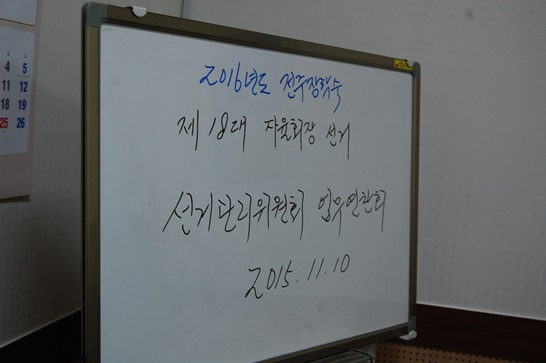 4 5
11 12
18 19
25 26
2016년도 전주장학숙
제 18대 자율회장 선거
선거관리위원회 업무연찬회
2015.11.10